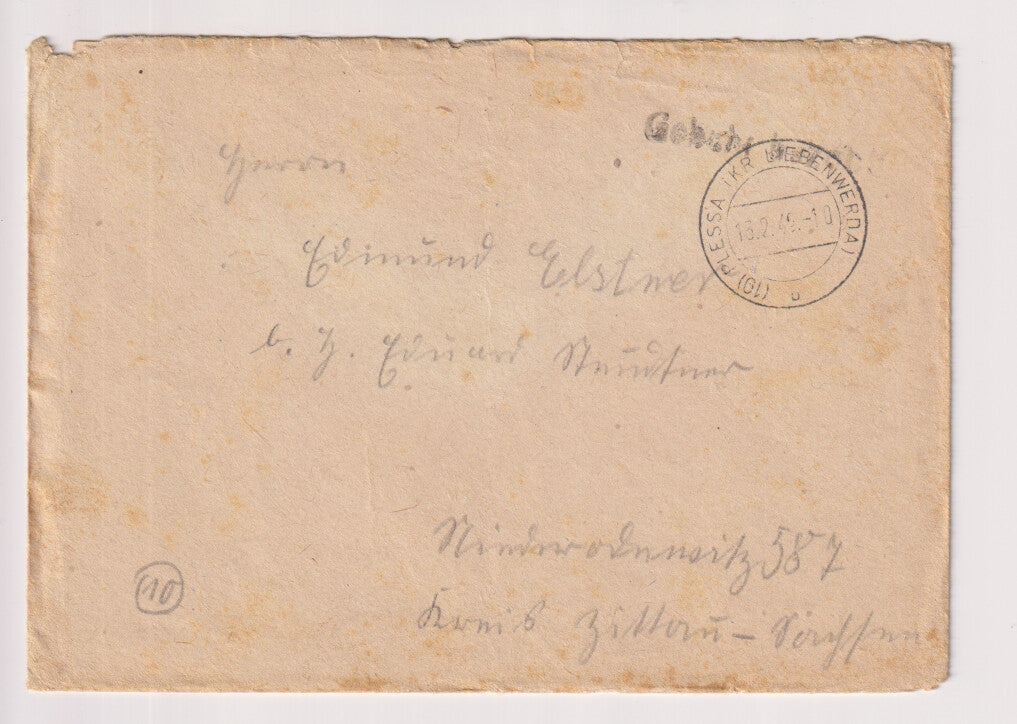 Gebühr
(10) PLESSA (KR LIEBENWERDA)
13.2.46.-10
a
Herrn
Edmund Elstner
b. H. Eduard Steudtner
Niederoderwitz 587
(10)
Kreis Zittau – Sachsen